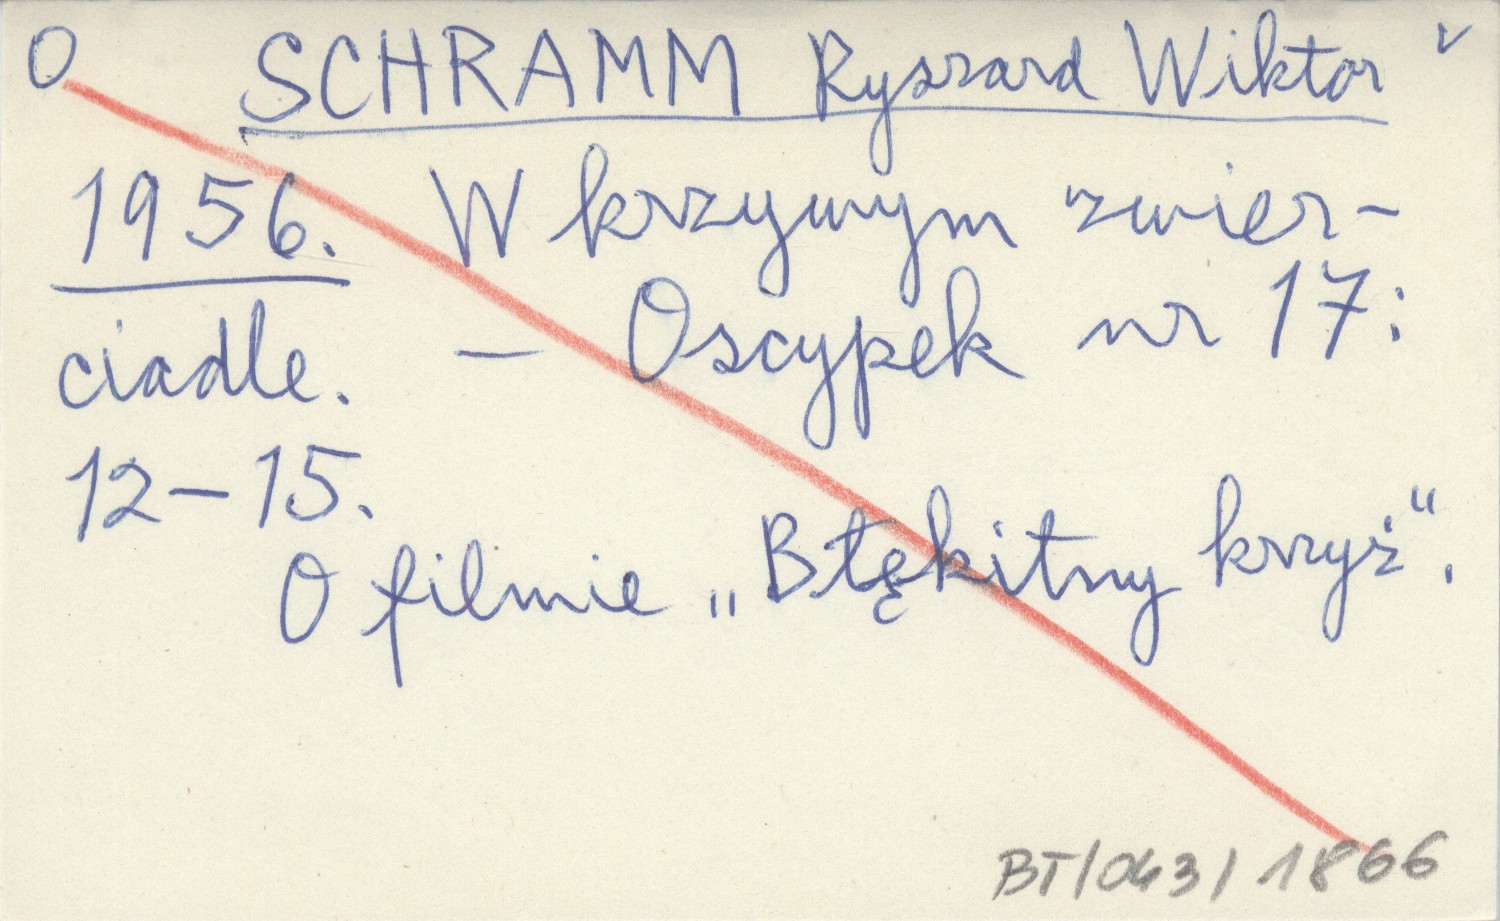 O SCHRAMM Ryszard Wiktor v
1956. W krzywym zwier-
ciadle. – Oscypek nr 17:
12–15.
O filmie „Błękitny krzyż".
BT/043/1866